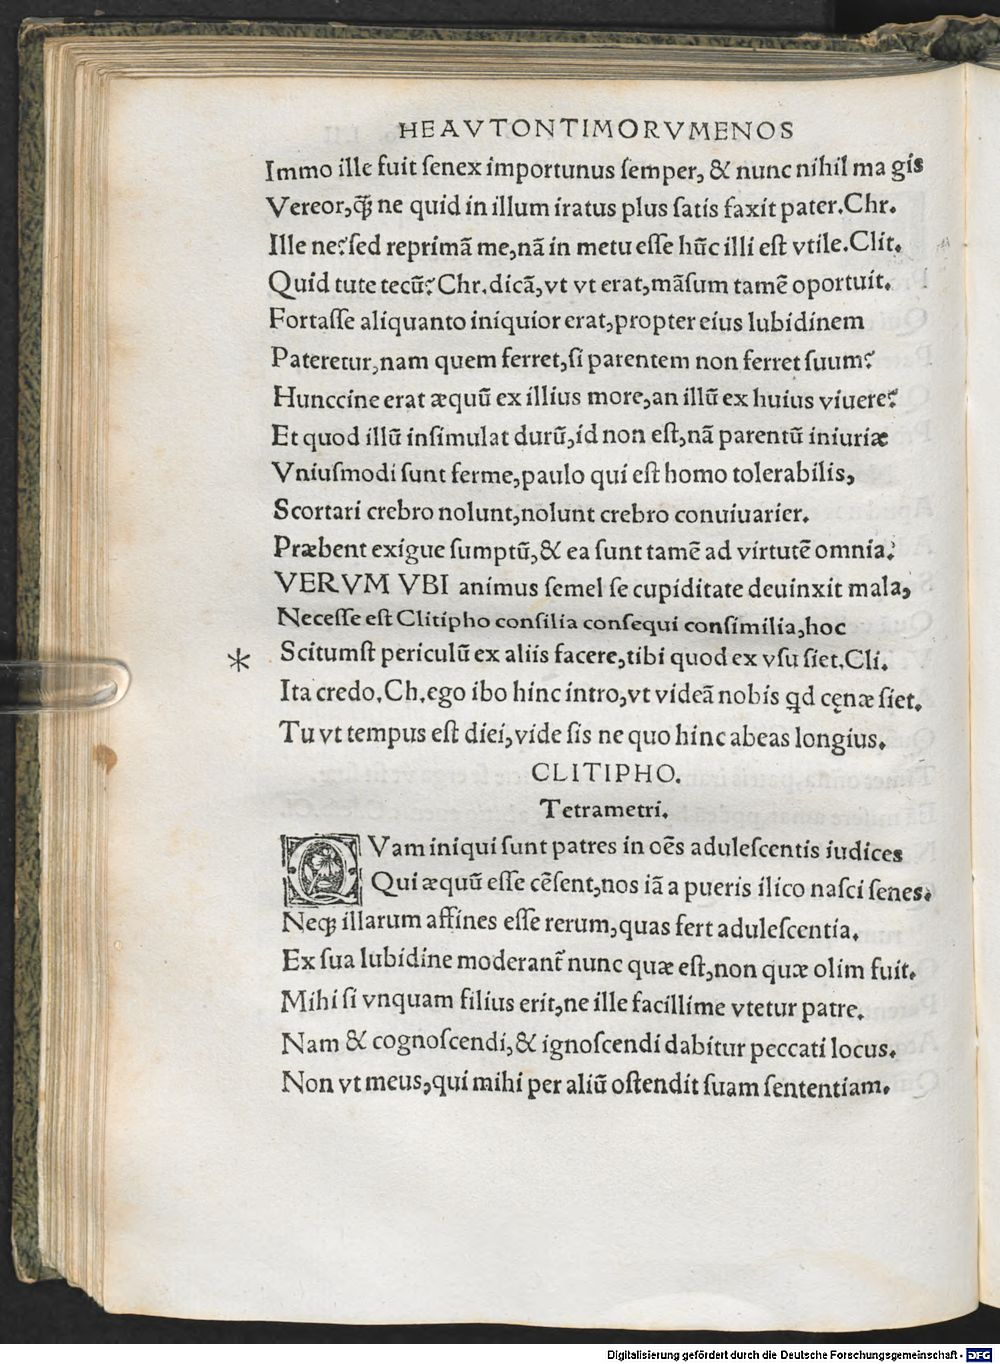 HEAVTONTIMORVMENOS
Immo ille fuit ſenex importunus ſemper, & nunc nihil ma gis
Vereor, ꝙ̃ ne quid in illum iratus plus ſatis faxit pater. Chr.
Ille ne? ſed reprimã me, nã in metu eſſe hũc illi eſt vtile. Clit.
Quid tute tecũ? Chr. dicã, vt vt erat, mãſum tamẽ oportuit.
Fortaſſe aliquanto iniquior erat, propter eius lubidinem
Pateretur, nam quem ferret, ſi parentem non ferret ſuum?
Hunccine erat æquũ ex illius more, an illũ ex huius viuere?
Et quod illũ inſimulat durũ, id non eſt, nã parentũ iniuriæ
Vniuſmodi ſunt ferme, paulo qui eſt homo tolerabilis,
Scortari crebro nolunt, nolunt crebro conuiuarier.
Præbent exigue ſumptũ, & ea ſunt tamẽ ad virtutẽ omnia.
VERVM VBI animus ſemel ſe cupiditate deuinxit mala,
Neceſſe eſt Clitipho conſilia conſequi conſimilia, hoc
* Scitumſt periculũ ex aliis facere, tibi quod ex vſu ſiet. Cli.
Ita credo. Ch. ego ibo hinc intro, vt videã nobis qd cęnæ ſiet.
Tu vt tempus eſt diei, vide ſis ne quo hinc abeas longius.
CLITIPHO.
Tetrametri.
QVam iniqui ſunt patres in oẽs aduleſcentis iudices
Qui æquũ eſſe cẽſent, nos iã a pueris ilico naſci ſenes.
Neqꝫ illarum affines eſſe rerum, quas fert aduleſcentia.
Ex ſua lubidine moderant̃ nunc quæ eſt, non quæ olim fuit.
Mihi ſi vnquam filius erit, ne ille facillime vtetur patre.
Nam & cognoſcendi, & ignoſcendi dabitur peccati locus.
Non vt meus, qui mihi per aliũ oſtendit ſuam ſententiam.
Digitalisierung gefördert durch die Deutsche Forschungsgemeinschaft - DFG